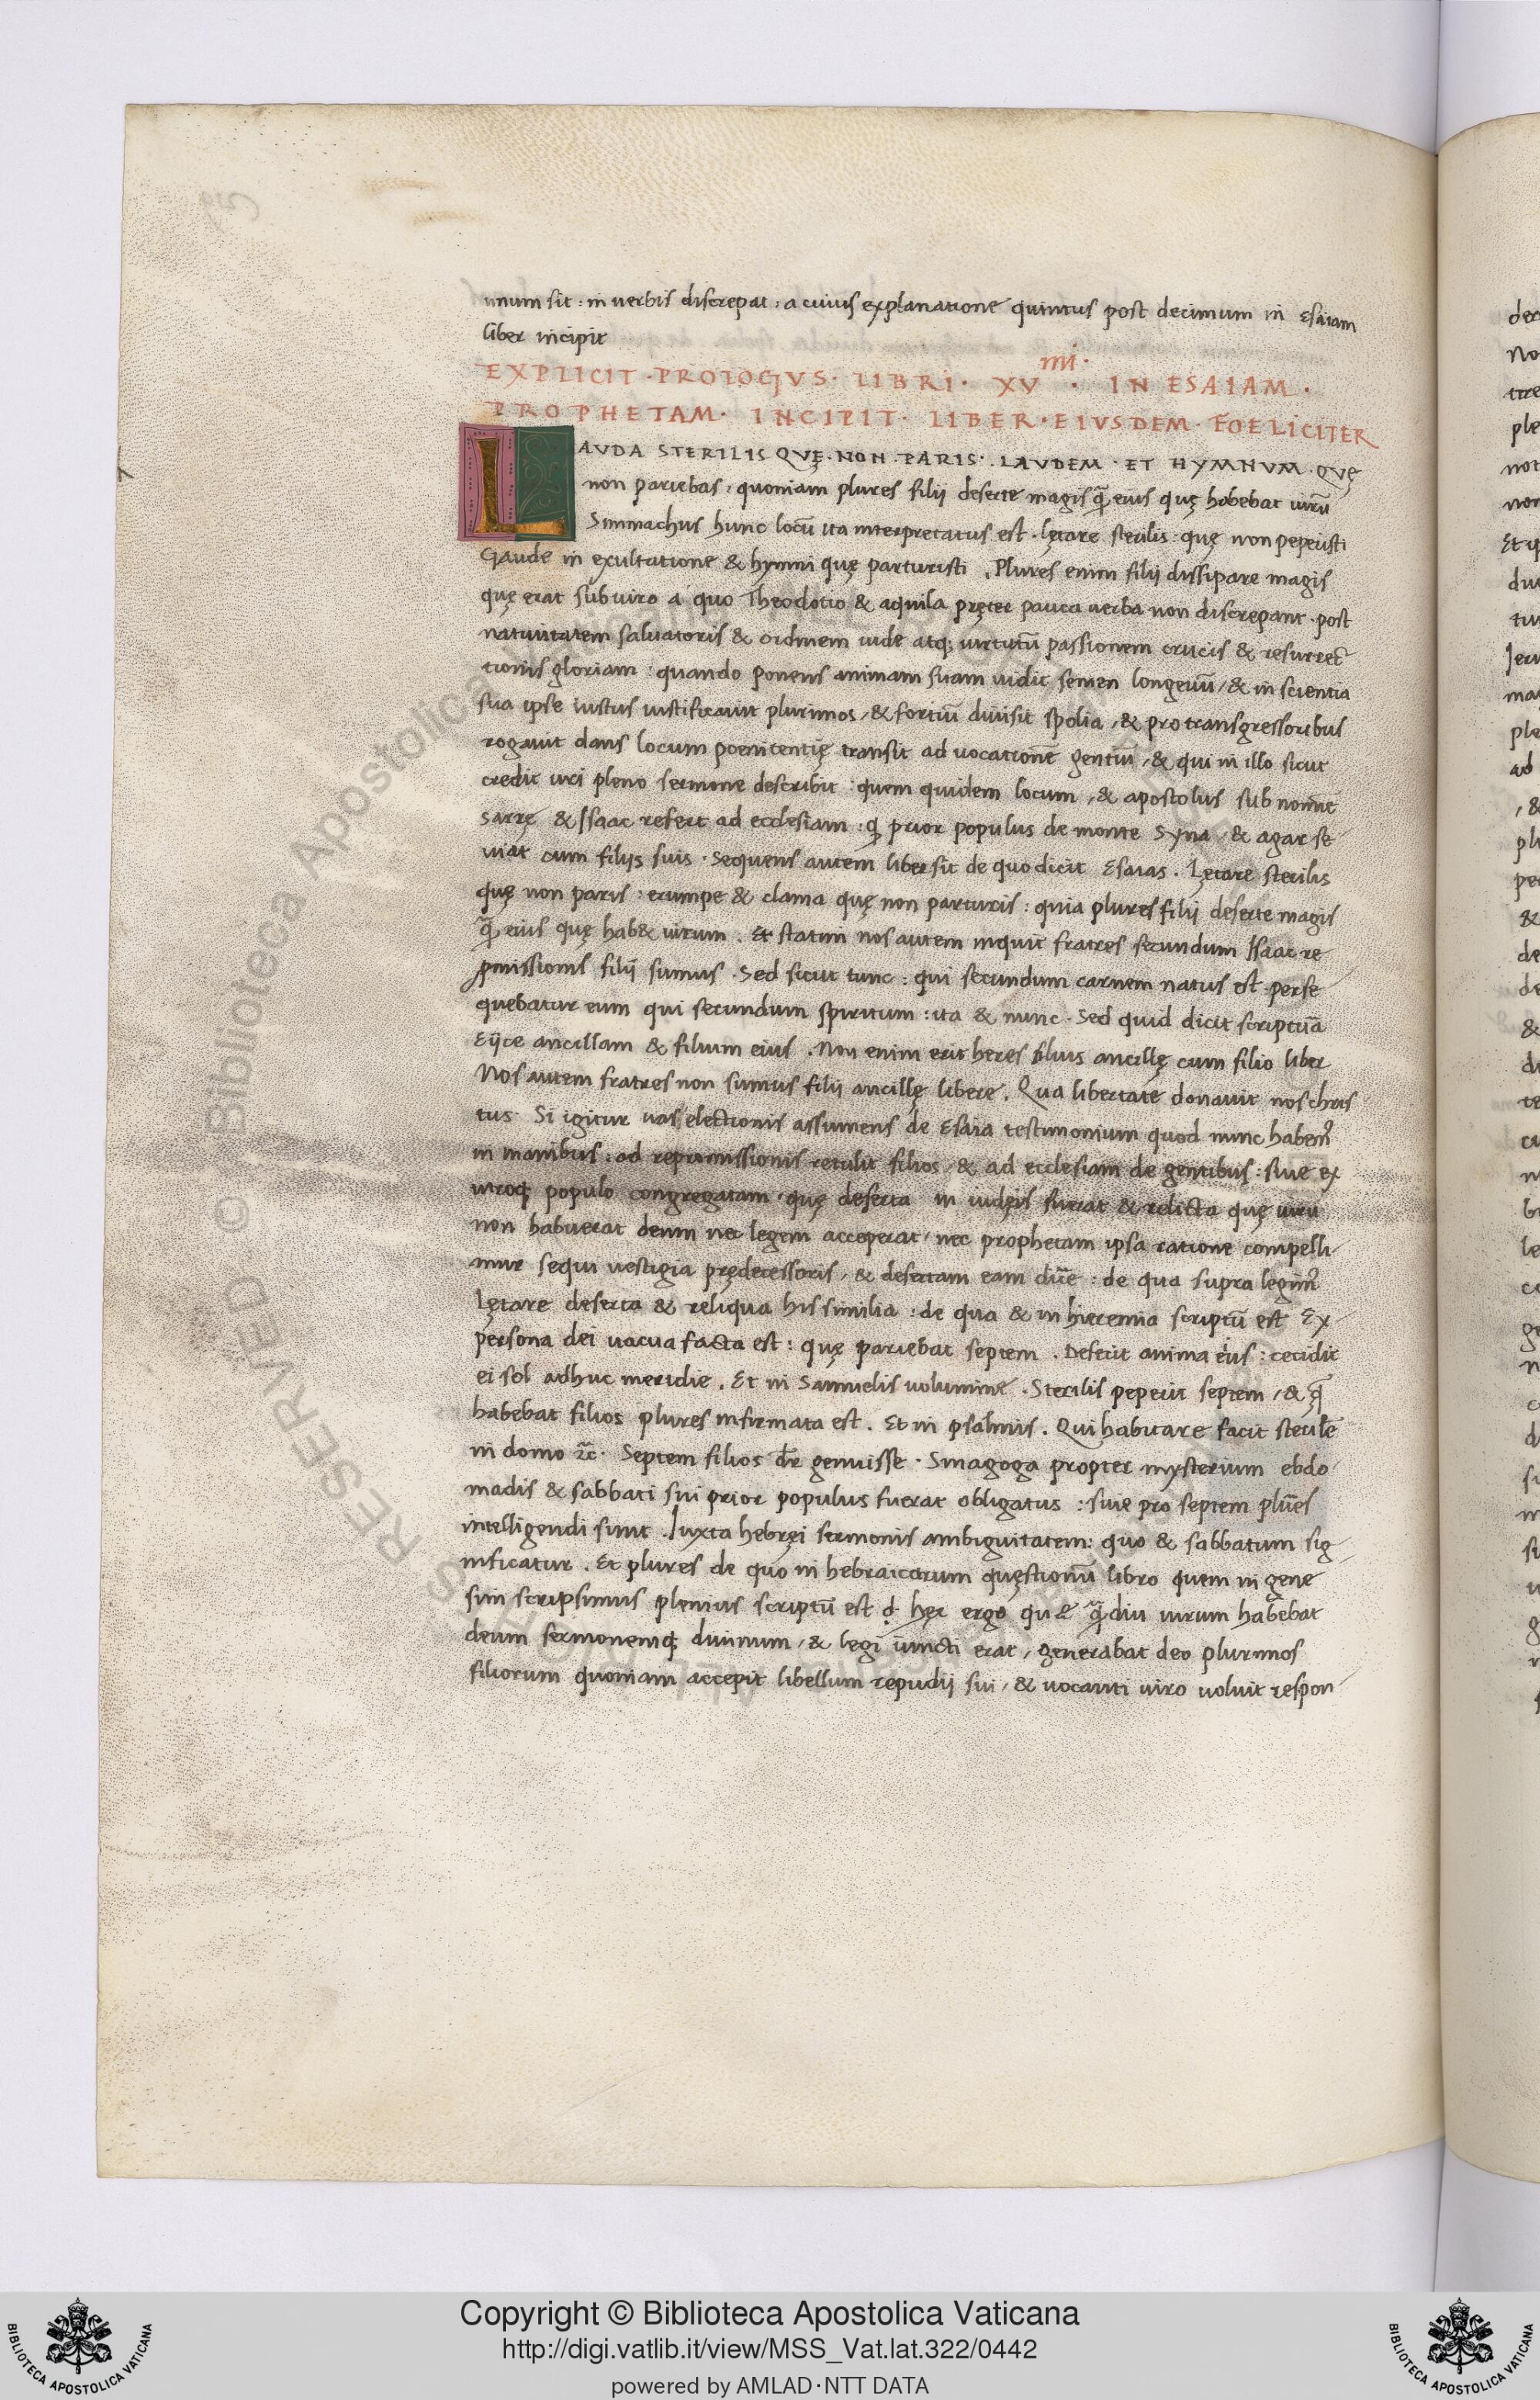 unum sit : in uerbis discrepat : a cuius explanatione quintus post decimum in Esaiam
liber incipit
EXPLICIT · PROLOGVS · LIBRI · XV mi · IN ESAIAM ·
PROPHETAM · INCIPIT · LIBER · EIVSDEM · FOELICITER
LAVDA STERILIS QVĘ · NON · PARIS · LAVDEM · ET HYMNVM · QVĘ
non pariebas : quoniam plures filij deserte magis q̃ eius quę habebat uirũ
Simmachus hunc locũ ita interpretatus est · lętare sterilis : quę non peperisti
Gaude in exultatione & hymni quę parturisti . Plures enim filij dissipare magis
quę erat sub uiro a quo Theodotio & aquila pręter pauca uerba non discrepant · post
natiuitatem saluatoris & ordinem uide atq; uirtutũ passionem crucis & resurrec̃
tionis gloriam : quando ponens animam suam uidit semen longeuũ / & in scientia
sua ipse iustus iustificauit plurimos / & fortiũ diuisit spolia / & pro transgressoribus
rogauit dans locum poenitentię transit ad uocationẽ gentiũ / & qui in illo sicut
credit uti pleno sermone describit : quem quidem locum / & apostolus sub nomine
Sarrę & Isaac refert ad ecclesiam : q prior populus de monte Syna / & agar se
uiat cum filijs suis · Sequens autem liber sit de quo dicit Esaias . Lętare sterilis
quę non paris : erumpe & clama quę non parturis : quia plures filij deserte magis
q̃ eius quę hab& uirum . Et statim nos autem inquit fratres secundum Isaac re
pmissionis filij sumus . Sed sicut tunc : qui secundum carnem natus est · perse
quebatur eum qui secundum spiritum : ita & nunc · Sed quid dicit scriptura
Eijce ancillam & filium eius . Non enim erit heres filius ancillę cum filio liber
Nos autem fratres non sumus filij ancillę libere . Qua libertate donauit nos chris
tus · Si igitur uas electionis assumens de Esaia testimonium quod nunc habemꝰ
in manibus : ad repromissionis retulit filios / & ad ecclesiam de gentibus : siue ex
utroq; populo congregatam · quę deserta in iudęis fuerat & relicta quę uirũ
non habuerat deum nec legem acceperat / nec prophetam ipsa ratione compelli
mur sequi uestigia prędecessoris / & desertam eam dicẽ : de qua supra legimꝰ
Lętare deserta & reliqua his similia : de qua & in hieremia scriptũ est Ex
persona dei uacua facta est : quę pariebat septem . Defecit anima eius : cecidit
ei sol adhuc meridie . Et in Samuelis uolumine . Sterilis peperit septem / & q̃
habebat filios plures infirmata est . Et in psalmis . Qui habitare facit sterilẽ
in domo &c̃ · Septem filios dr̃ genuisse · Sinagoga propter mysterium ebdo
madis & sabbati sui prior populus fuerat obligatus : siue pro septem plures
intelligendi sunt . Iuxta hebręi sermonis ambiguitatem : quo & sabbatum sig
nificatur . Et plures de quo in hebraicarum quęstionũ libro quem in gene
sim scripsimus plenius scriptũ est hęc ergo quę q̃diu uirum habebat
deum sermonemq; diuinum / & legi iuncti erat / generabat deo plurimos
filiorum quoniam accepit libellum repudij sui / & uocanti uiro uoluit respon
Copyright © Biblioteca Apostolica Vaticana
http://digi.vatlib.it/view/MSS_Vat.lat.322/0442
powered by AMLAD·NTT DATA